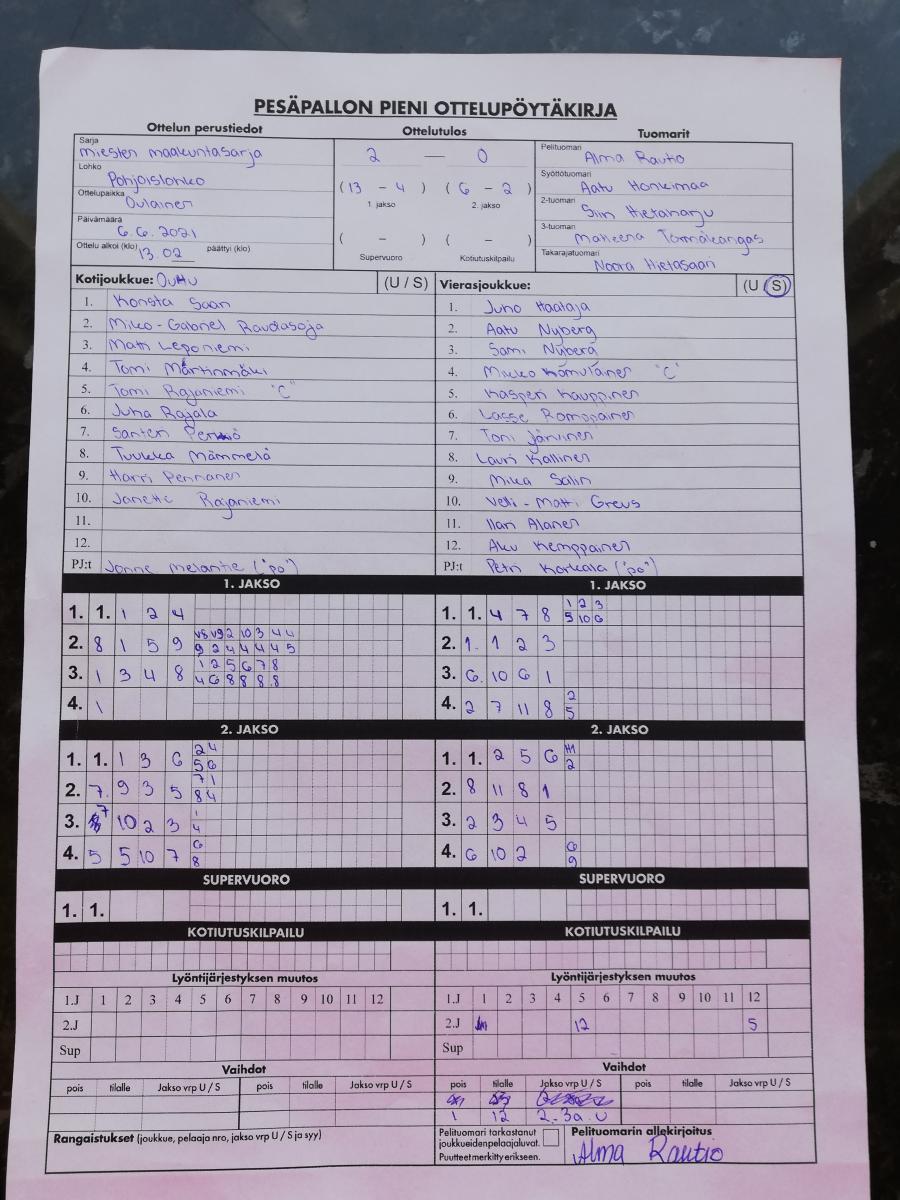 PESÄPALLON PIENI OTTELUPÖYTÄKIRJA
Ottelun perustiedot Ottelutulos Tuomarit
Sarja
Miesten maakuntasarja
Lohko
Pohjoislohko
Ottelupaikka
Oulainen
Päivämäärä
6.6.2021
Ottelu alkoi (klo) 13.02 päättyi (klo)
2 — 0
(13 - 4) (6 - 2)
1. jakso 2. jakso
( - ) ( - )
Supervuoro Kotiutuskilpailu
Pelituomari Alma Rautio
Syöttötuomari
Aatu Honkimaa
2-tuomari
Siiri Hietaharju
3-tuomari
Törmäkangas
Takarajatuomari
Noora Hietasaari
Kotijoukkue: OuHu (U / S)
1. Konsta Saari
2. Miko-Gabriel Raudasoja
3. Matti Leponiemi
4. Tomi Martinmäki
5. Tomi Rajaniemi "C"
6. Juha Rajala
7. Santeri
8. Tuukka Mämmelä
9. Harri Pennanen
10. Janette Rajaniemi
11.
12.
PJ:t Jonne ("po")
Vierasjoukkue: (U / S)
1. Juho Haataja
2. Aatu Nyberg
3. Sami Nyberg
4. Mikko Komulainen "C"
5. Kasperi Kauppinen
6. Lasse Romppainen
7. Toni Järvinen
8. Lauri Kallinen
9. Mika Salin
10. Veli-Matti Greus
11. Ilari Alanen
12. Aku Kemppainen
PJ:t Petri Karkala ("po")
1. JAKSO
1. 1. 1 2 4
2. 8 1 5 9 V8 V9 2 10 3 4 4
9 2 4 4 4 4 5
3. 1 3 4 8 1 2 5 6 7 8
4 6 8 8 8 8
4. 1
1. JAKSO
1. 1. 4 7 8 1 2 3
5 10 6
2. 1. 1 2 3
3. 6. 10 6 1
4. 2 7 11 8 2
5
2. JAKSO
1. 1. 1 3 6 2 4
5 6
2. 7. 9 3 5 7 1
8 4
3. 7 10 2 3 1
4
4. 5 5 10 7 6
8
2. JAKSO
1. 1. 2 5 6
2
2. 8 11 8 1
3. 2 3 4 5
4. 6 10 2 6
9
SUPERVUORO
1. 1.
SUPERVUORO
1. 1.
KOTIUTUSKILPAILU
KOTIUTUSKILPAILU
Lyöntijärjestyksen muutos
1.J 1 2 3 4 5 6 7 8 9 10 11 12
2.J
Sup
Lyöntijärjestyksen muutos
1.J 1 2 3 4 5 6 7 8 9 10 11 12
2.J 12 5
Sup
Vaihdot
pois tilalle Jakso vrp U / S pois tilalle Jakso vrp U / S
Vaihdot
pois tilalle Jakso vrp U / S pois tilalle Jakso vrp U / S
1 12 2-3a U
Rangaistukset (joukkue, pelaaja nro, jakso vrp U / S ja syy)
Pelituomari tarkastanut
joukkueiden pelaajaluvat.
Puutteet merkitty erikseen.
Pelituomarin allekirjoitus
Alma Rautio